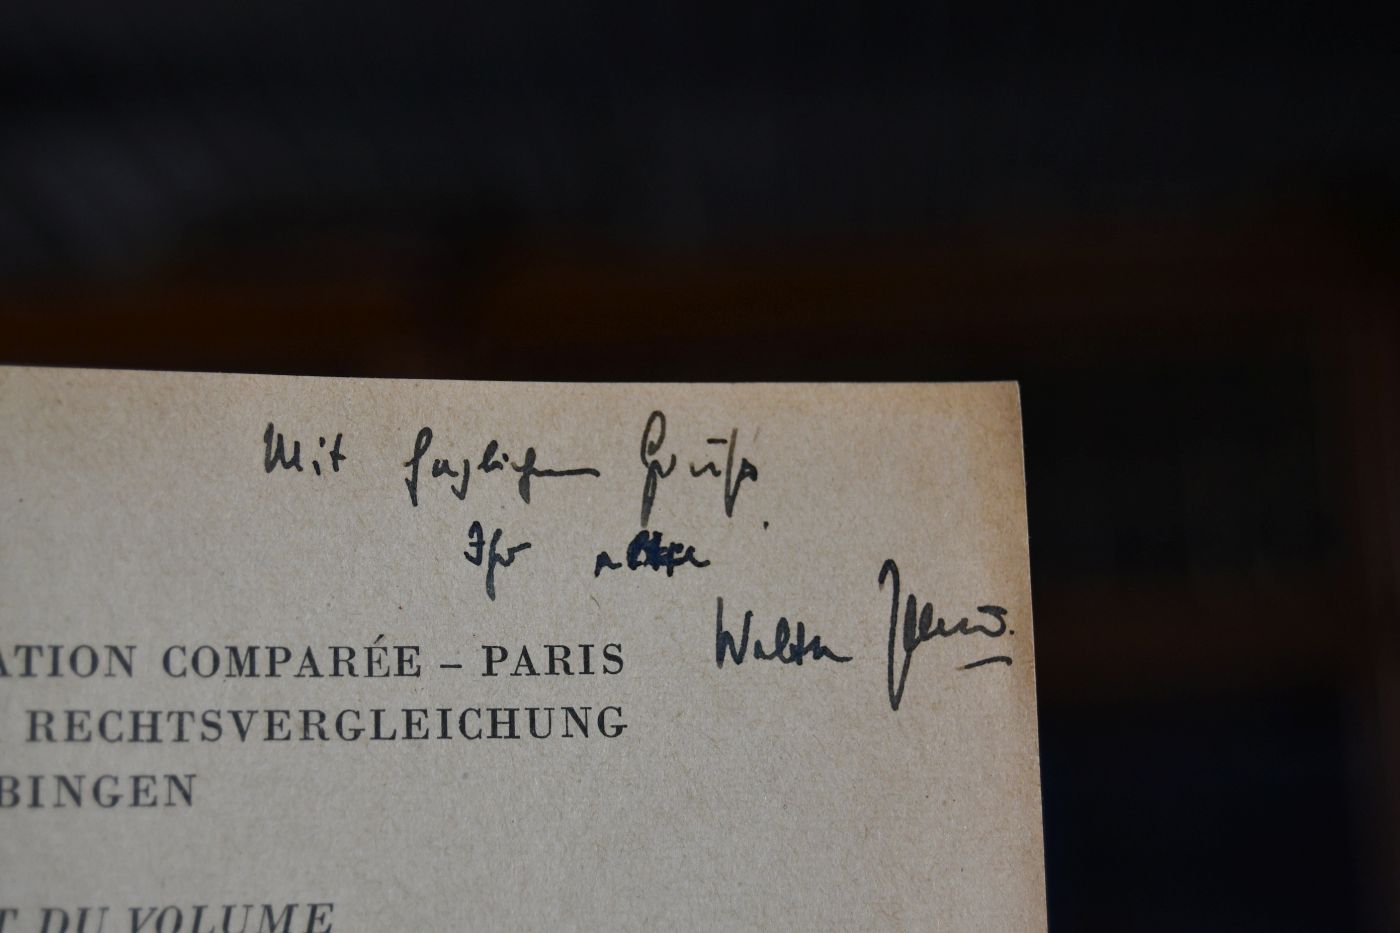 Mit herzlichem Gruß
Ihr
Walter
ATION COMPARÉE – PARIS
RECHTSVERGLEICHUNG
BINGEN
T DU VOLUME